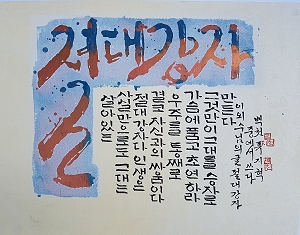 절대강자
살아있는
사실만으로도 그대는
절대강자다 인생은
결국 자신과의 싸움이다
우주를 통째로
가슴에 품고 초연하라
그것만이 그대를 승자로
만든다
이외수님의 글 절대강자
중에서 쓰다